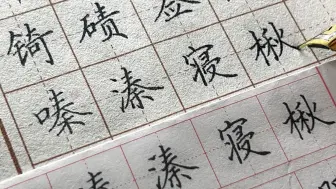 锜碛签
嗪溱寝楸
嗪溱寝楸